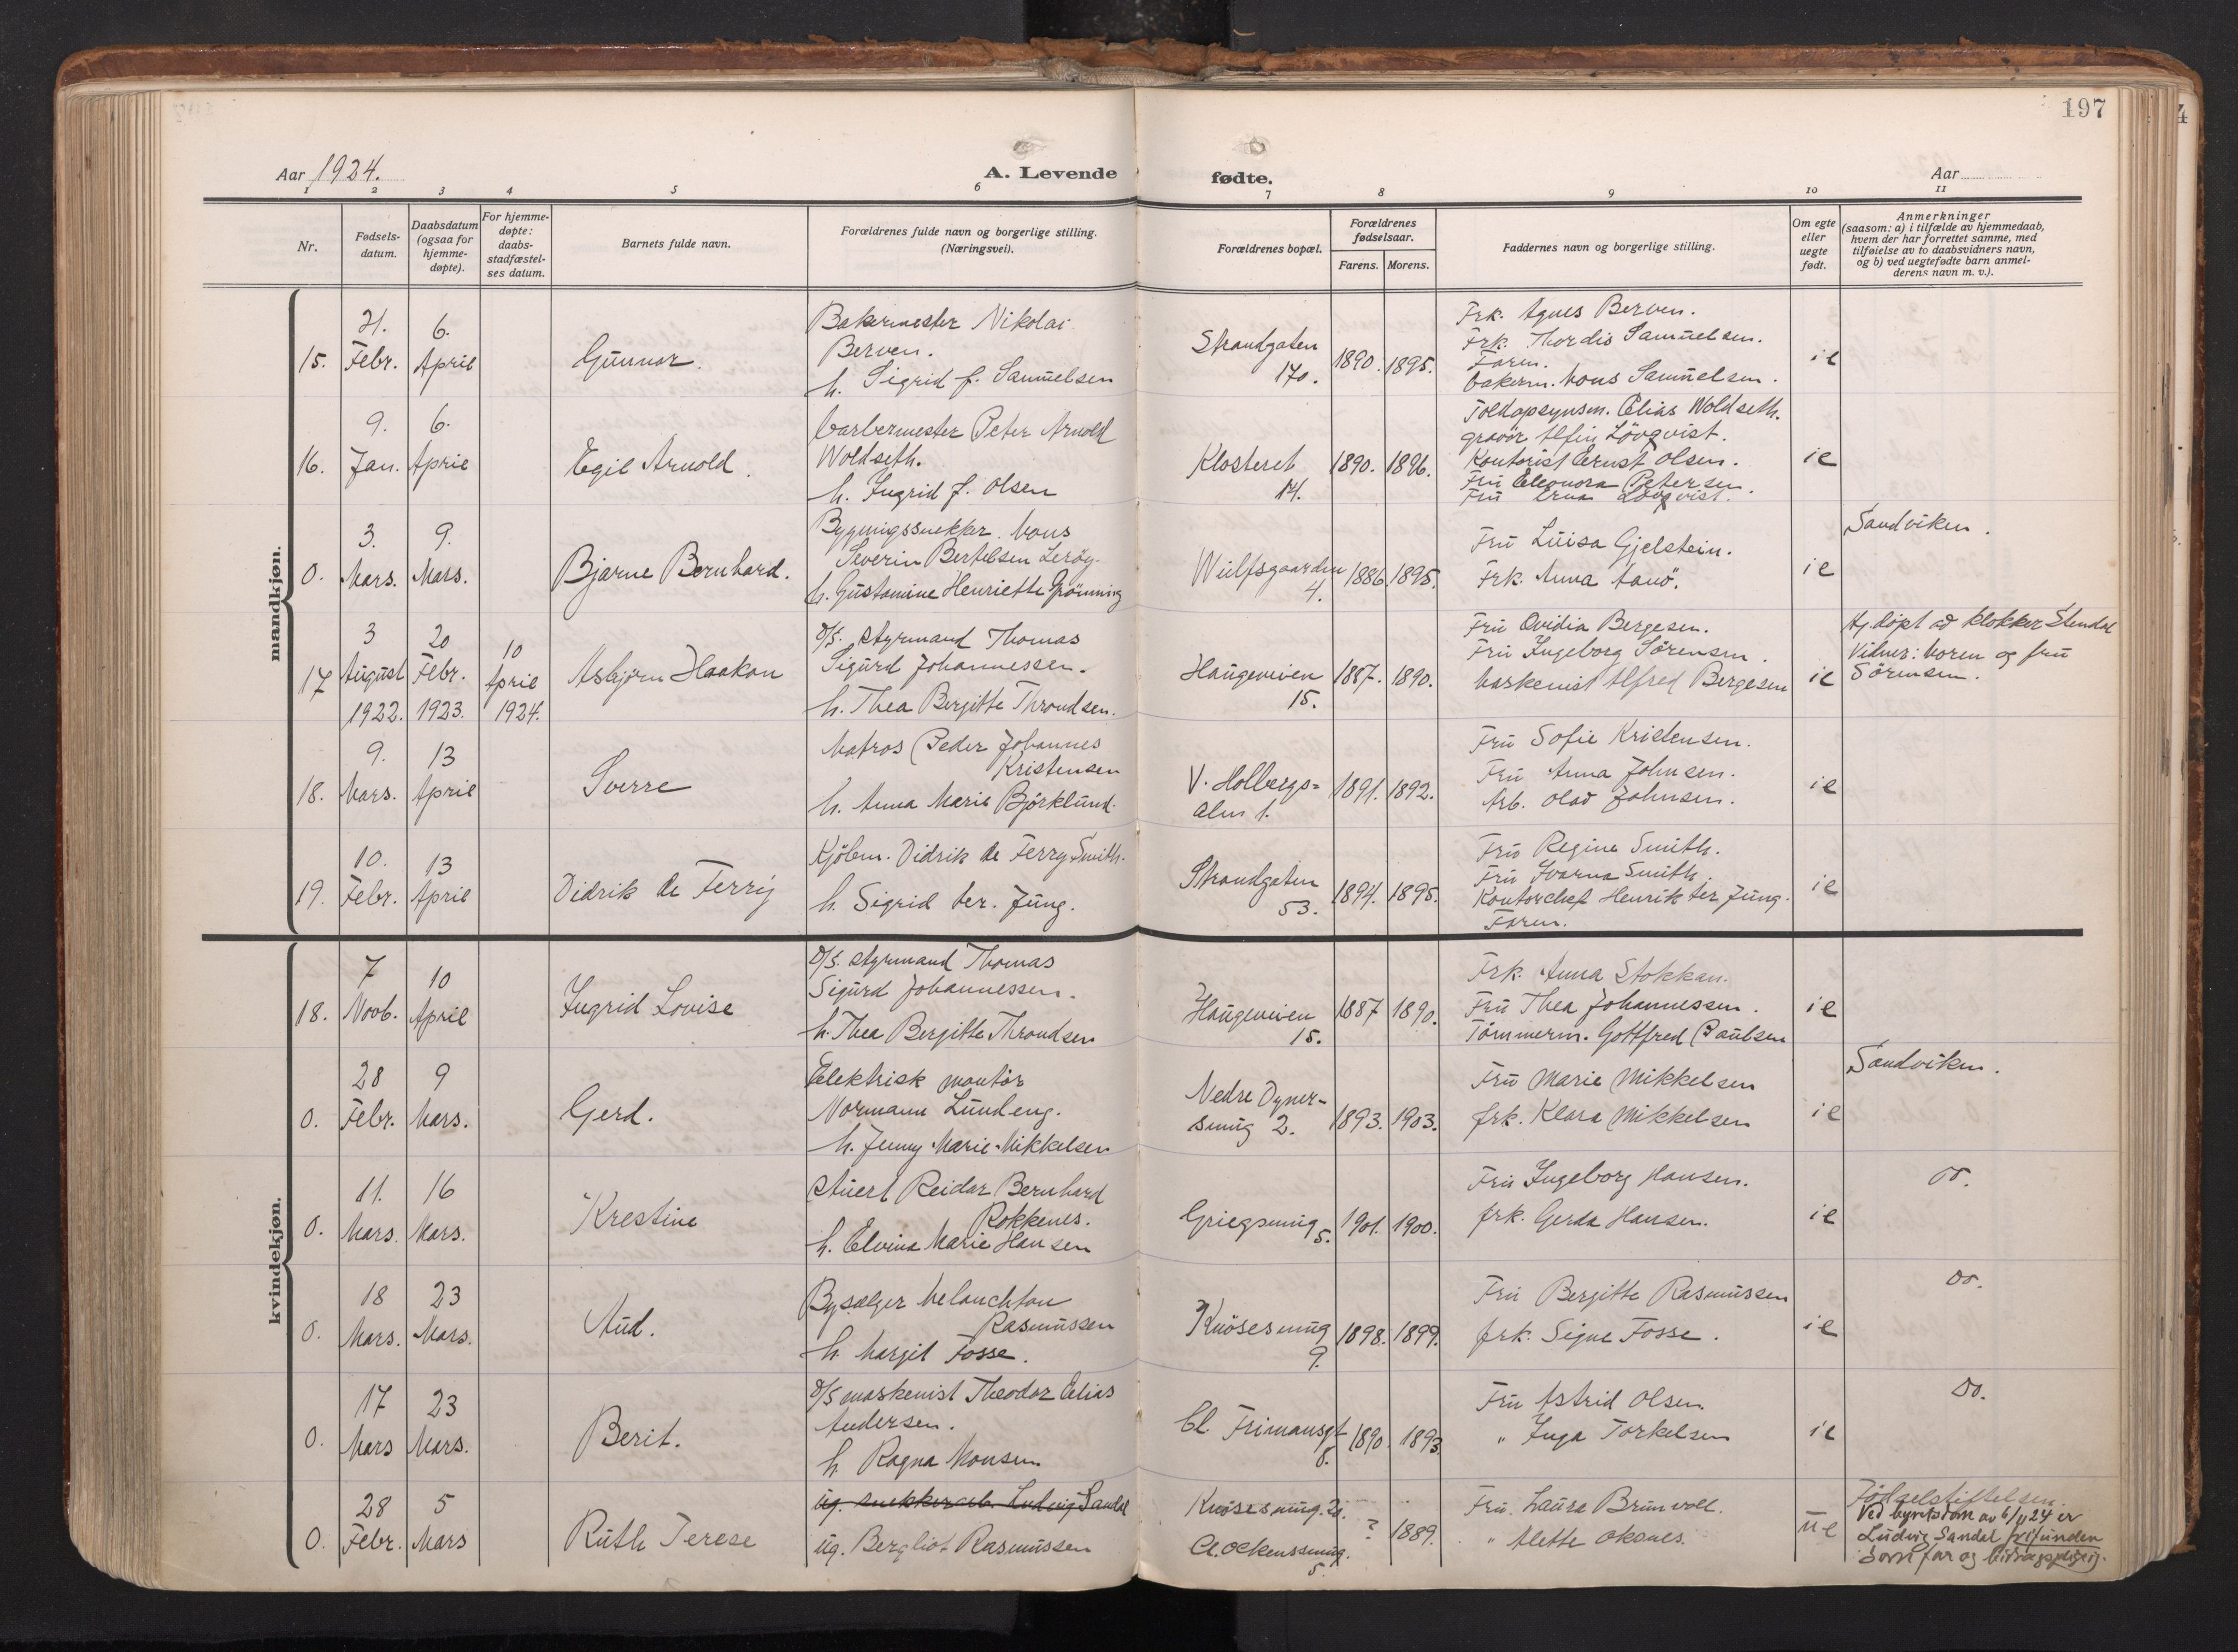 197
Aar 1924.
A. Levende fødte.
Aar
1 2 3 4 5 6 7 8 9 10 11
Nr.
Fødsels-
datum.
Daabsdatum
(ogsaa for
hjemme-
døpte).
For hjemme-
døpte:
daabs-
stadfæstel-
ses datum.
Barnets fulde navn.
Forældrenes fulde navn og borgerlige stilling.
(Næringsvei).
Forældrenes bopæl.
Forældrenes
fødselsaar.
Farens. Morens.
Faddernes navn og borgerlige stilling.
Om egte
eller
uegte
født.
Anmerkninger
(saasom: a) i tilfælde av hjemmedaab,
hvem der har forrettet samme, med
tilføielse av to daabsvidners navn,
og b) ved uegtefødte barn anmel-
derens navn m. v.).
mandkjøn.
15.
21.
Febr.
6.
April
Gunnar.
Bakermester Nikolai
Berven.
h. Sigrid f. Samuelsen
Strandgaten
170.
1890. 1895.
Frk. Agnes Berven.
Frk. Thordis Samuelsen.
Faren.
bakerm. Mons Samuelsen.
ie
16.
9.
Jan.
6.
April
Egil Arnold.
barbermester Peter Arnold
Woldseth.
h. Ingrid f. Olsen
Klosteret
14.
1890. 1896.
Toldopsynsm. Elias Woldseth.
gravør Alfin Lövqvist.
Kontorist Ernst Olsen.
Fru Eleonora Petersen.
Fru Erna Lövqvist.
ie
0.
3.
Mars.
9.
Mars.
Bjarne Bernhard.
Bygningssnekker Mons
Severin Bertelsen Lerøy.
h. Gustamine Henriette Grönning
Wulfsgaarden
4.
1886 1895.
Fru Luisa Gjelstein.
Frk. Anna
ie
Sandviken.
17
3
August
1922.
20
Febr.
1923.
10
April
1924.
Asbjørn Haakon
D/S. styrmand Thomas
Sigurd Johannessen.
h. Thea Bergitte Throndsen.
Haugeveien
15.
1887. 1890.
Fru Ovidia Bergesen.
Fru Ingeborg Sörensen.
Maskenist Alfred Bergesen
ie
Hj. döpt av klokker Stendal
Vidner: Moren og fru
Sörensen.
18.
9.
Mars.
13
April
Sverre
Matros Peder Johannes
Kristensen
h. Anna Marie Björklund.
V. Holbergs-
alm 1.
1891. 1892.
Fru Sofie Kristensen.
Fru Anna Johnsen.
Arb. Olav Johnsen.
ie
19.
10.
Febr.
13
April
Didrik de Ferry
Kjöbm. Didrik de Ferry Smith.
h. Sigrid ter. Jung.
Strandgaten
53.
1894. 1895.
Fru Regine Smith.
Fru Ivarna Smith.
Kontorchef Henrik ter Jung.
Faren.
ie
kvindekjøn.
18.
7
Novb.
10
April
Ingrid Lovise
D/S. styrmand Thomas
Sigurd Johannessen.
h. Thea Bergitte Throndsen
Haugeveien
15.
1887 1890.
Frk. Anna Stokkan.
Fru Thea Johannessen.
Tömmerm. Gottfred Paulsen
ie
0.
28
Febr.
9
Mars.
Gerd.
Elektrisk montör
Normann Lundeng.
h. Jenny Marie Mikkelsen
Nedre Dyner-
smug 2.
1893. 1903.
Fru Marie Mikkelsen
frk. Klara Mikkelsen
ie
Sandviken.
0.
11.
Mars.
16
Mars.
Krestine
Stuert Reidar Bernhard
Rokkenes.
h. Elvina Marie Hansen
Griegsmug
5.
1901. 1900.
Fru Ingeborg Hansen.
frk. Gerda Hansen.
ie
Do.
0.
18
Mars.
23
Mars.
Aud.
Bysælger Melanchton
Rasmussen
h. Margit Fosse.
Knösesmug
9.
1898. 1899.
Fru Bergitte Rasmussen
frk. Signe Fosse.
ie
Do.
0.
17
Mars
23
Mars.
Berit.
D/S maskenist Theodor Elias
Andersen.
h. Ragna Monsen
Cl. Frimansgt
8.
1890. 1893
Fru Astrid Olsen.
" Inga Torkelsen
ie
Do.
0.
28
Febr.
5
Mars
Ruth Terese
ug. snekkerarb. Ludvig Sandal
ug. Bergliot Rasmussen
Knösesmug
Cl. Ockenssmug.
5.
? 1889.
Fru. Laura Brunvoll.
" Alette Oksnes.
ue
Födselstiftelsen.
Ved byretsdom av 6/11 24 er
Ludvig Sandal frifunden
som far og bidragspligtig.